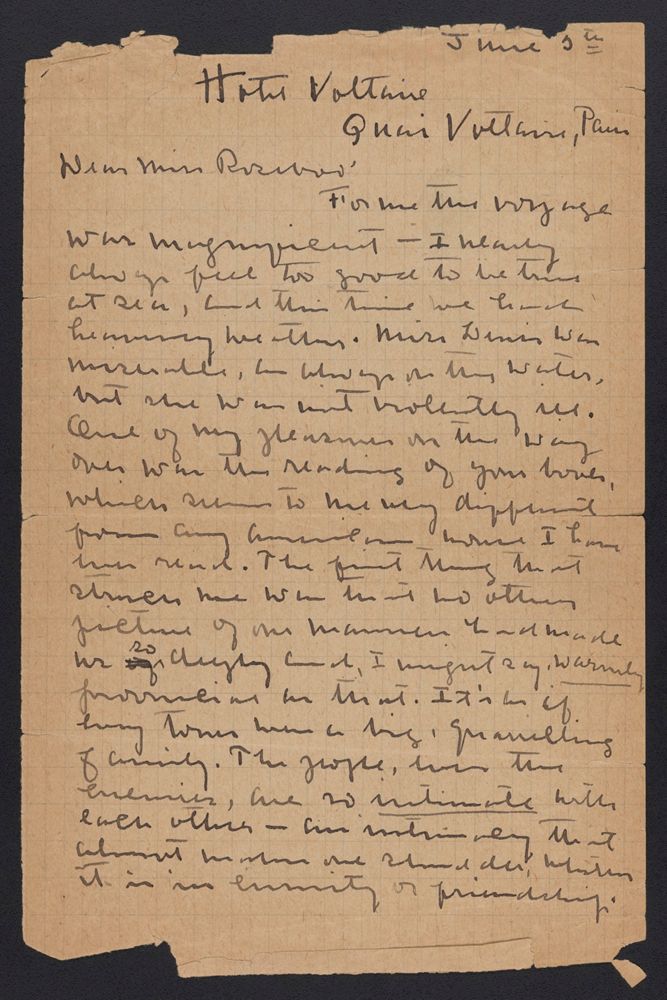 June 5th
Hotel Voltaire
Quai Voltaire, Paris
Dear Miss Roseboro'
For me the voyage
was magnificent — I nearly
always feel too good to be true
at sea, and this time we had
heavenly weather. Miss Lewis was
miserable, as always on the water,
but she was not violently ill.
One of my pleasures on the way
over was the reading of your book,
which seems to me very different
from any American novel I have
ever read. The first thing that
struck me was that no other
picture of our manners had made
us so deeply and, I might say, warmly
provincial as that. It's as if
every town were a big, quarrelling
family. The people, even the
enemies, are so intimate with
each other — an intimacy that
almost makes one shudder, whether
it is in enmity or friendship.